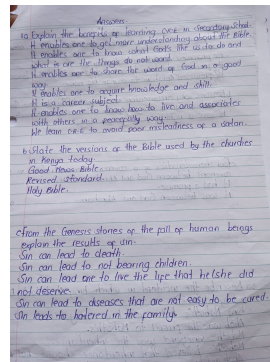 Answers
1a) Explain the benefits of learning C.R.E in Secondary School.
It enables one to get more understanding about the Bible.
It enables one to know what God's like us to do and
what is are the things do not want.
It enables one to share the word of God in a good
way.
It enables one to acquire knowledge and skill.
It is a career subject.
It enables one to know how to live and associates
with others in a peacefully way.
We learn C.R.E to avoid poor misleadness of a satan.
b) State the versions of the Bible used by the churches
in Kenya today.
Good News Bible.
Revised standard.
Holy Bible.
c) From the Genesis stories of the fall of human beings
explain the results of sin.
Sin can lead to death.
Sin can lead to not bearing children.
Sin can lead one to live the life that he/she did
not deserve.
Sin can lead to diseases that are not easy to be cured.
Sin leads to hatered in the family.